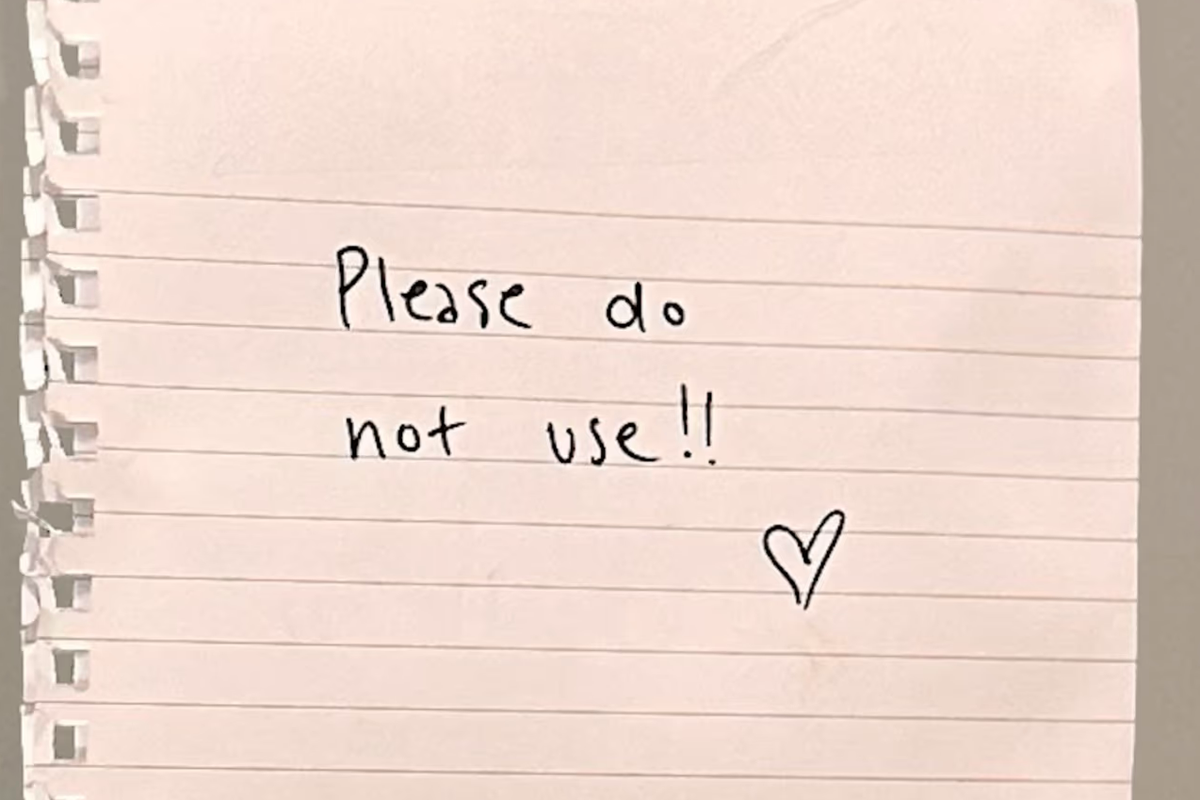 Please do
not use!!
♡